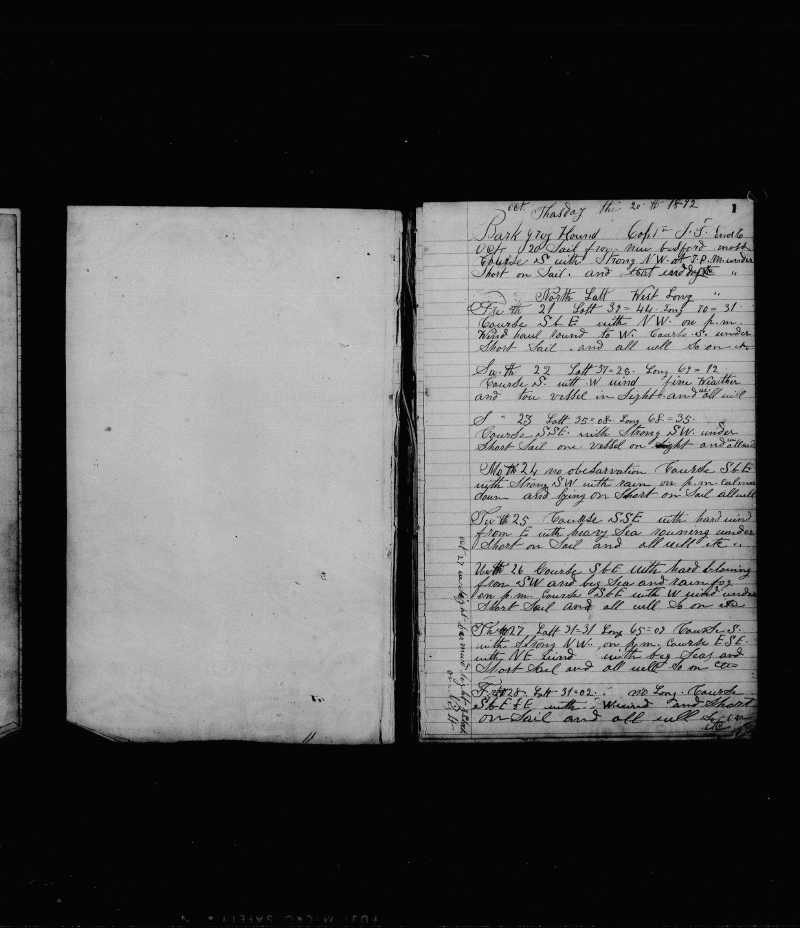 oct. Thasday the 20 th 1892
1
Bark grey Hound Capt J. T.
20 Sail from niu bedford
Course S with Strong NW. at 7. P.M. under
Short on Sail. and
North Latt West Long "
Fri th 21 Latt 39=44 Long 70=31
Course SbE with NW. on p.m.
Wind haul round to W. Course S. under
Short Sail. and all well So on etc
Sa. th 22 Latt 37=28. Long 69=12
Course S. with W wind fine Weather
and tou vessel in Sight and all well
S " 23 Latt 35=08. Long 68=35.
Course SSE. with Strong SW. under
Short Sail one vessel on Sight and
Mo th 24 no obesarvation Course SbE
with Strong SW with rain, on p.m. calmer
down and lying on Short on Sail all well
Tu th 25 Course SSE with hard wind
from E with heavy Sea rouning under
Short on Sail and all well etc
We th 26 Course SbE with hard blowing
from SW and big Sea and rain fog
on p.m. Course SbE with W wind under
Short Sail and all well So on etc
Th th 27 Latt 31=31 Long 65=07 Course S.
with Strong NW. on p.m. Course ESE.
with NE wind with big Seas and
Short Sail and all well So on etc
Fr th 28. Latt 31=02. no Long. Course
SbE & E with W wind and Short
on Sail and all well So on
etc
oct 27